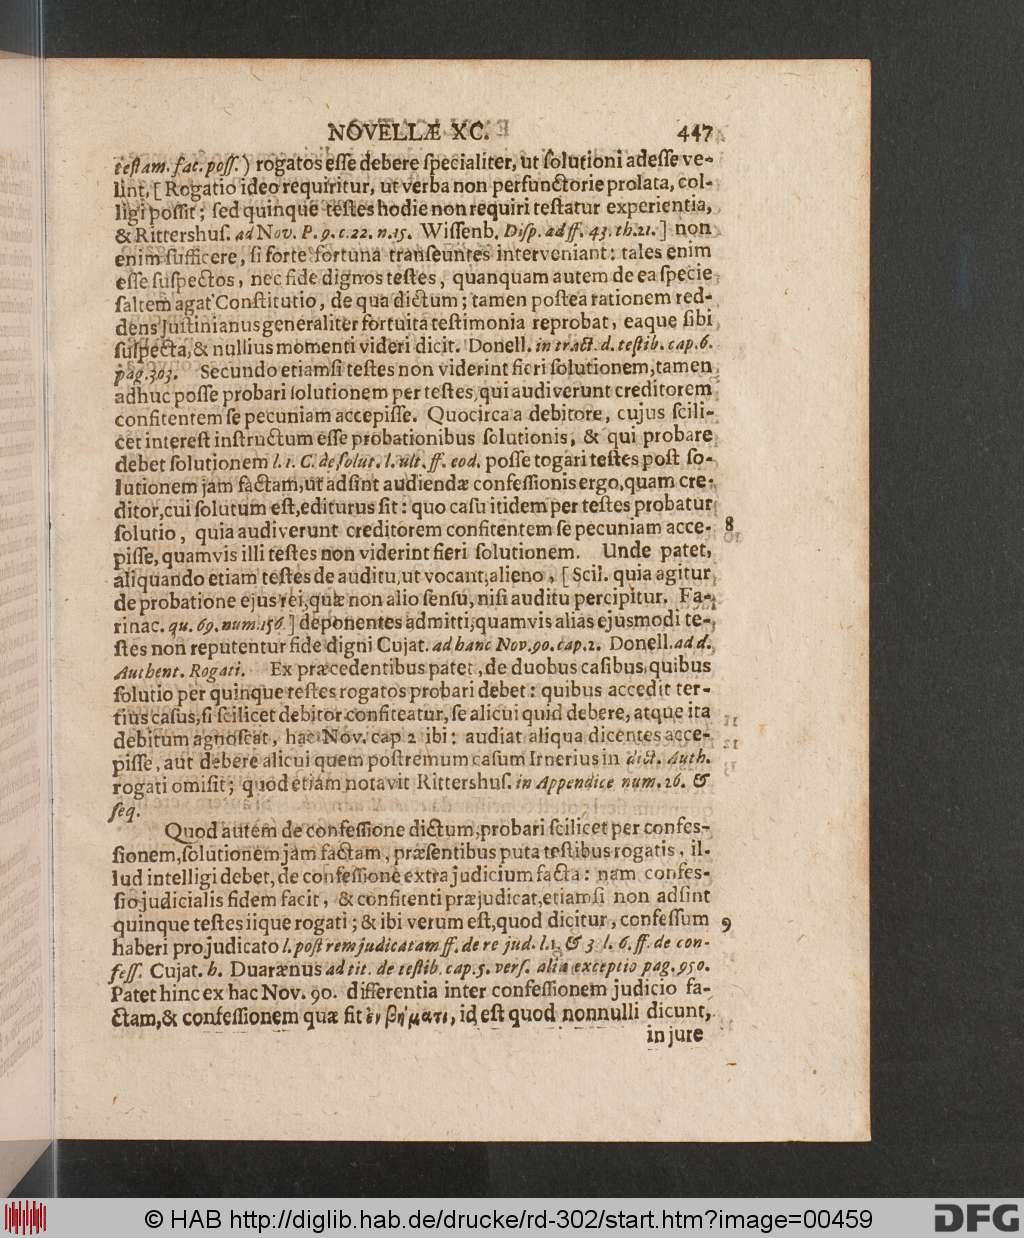 NOVELLÆ XC. 447
teſtam. fac. poſſ.) rogatos eſſe debere ſpecialiter, ut ſolutioni adeſſe ve-
lint, [Rogatio ideo requiritur, ut verba non perfunctorie prolata, col-
ligi poſſit; ſed quinque teſtes hodie non requiri teſtatur experientia,
& Rittershuſ. ad Nov. P. 9. c. 22. n. 15. Wiſſenb. Diſp. ad ff. 43. th. 21.] non
enim ſufficere, ſi forte fortuna tranſeuntes interveniant: tales enim
eſſe ſuſpectos, nec fide dignos teſtes, quanquam autem de ea ſpecie
ſaltem agat Conſtitutio, de qua dictum; tamen poſtea rationem red-
dens Juſtinianus generaliter fortuita teſtimonia reprobat, eaque ſibi
ſuſpecta, & nullius momenti videri dicit. Donell. in tract. d. teſtib. cap. 6.
pag. 303. Secundo etiamſi teſtes non viderint fieri ſolutionem, tamen
adhuc poſſe probari ſolutionem per teſtes, qui audiverunt creditorem
confitentem ſe pecuniam accepiſſe. Quocirca a debitore, cujus ſcili-
cet intereſt inſtructum eſſe probationibus ſolutionis, & qui probare
debet ſolutionem l. 1. C. de ſolut. l. ult. ff. eod. poſſe togari teſtes poſt ſo-
lutionem jam factam, ut adſint audiendæ confeſſionis ergo, quam cre-
ditor, cui ſolutum eſt, editurus ſit: quo caſu itidem per teſtes probatur
ſolutio, quia audiverunt creditorem confitentem ſe pecuniam acce- 8
piſſe, quamvis illi teſtes non viderint fieri ſolutionem. Unde patet,
aliquando etiam teſtes de auditu, ut vocant, alieno, [Scil. quia agitur
de probatione ejus rei, quæ non alio ſenſu, niſi auditu percipitur. Fa-
rinac. qu. 69. num. 156.] deponentes admitti, quamvis alias ejusmodi te-
ſtes non reputentur fide digni Cujat. ad hanc Nov. 90. cap. 2. Donell. ad d.
Authent. Rogati. Ex præcedentibus patet, de duobus caſibus, quibus
ſolutio per quinque teſtes rogatos probari debet: quibus accedit ter-
tius caſus, ſi ſcilicet debitor confiteatur, ſe alicui quid debere, atque ita
debitum agnoſcat, hac Nov. cap 2 ibi: audiat aliqua dicentes acce-
piſſe, aut debere alicui quem poſtremum caſum Irnerius in dict. Auth.
rogati omiſit; quod etiam notavit Rittershuſ. in Appendice num. 26. &
ſeq.
Quod autem de confeſſione dictum, probari ſcilicet per confeſ-
ſionem, ſolutionem jam factam, præſentibus puta teſtibus rogatis, il-
lud intelligi debet, de confeſſione extra judicium facta: nam confeſ-
ſio judicialis fidem facit, & confitenti præjudicat, etiamſi non adſint
quinque teſtes iique rogati; & ibi verum eſt, quod dicitur, confeſſum 9
haberi pro judicato l. poſt rem judicatam ff. de re jud. l. 1. & 3. l. 6. ff. de con-
feſſ. Cujat. h. Duarænus ad tit. de teſtib. cap. 5. verſ. alia exceptio pag. 950.
Patet hinc ex hac Nov. 90. differentia inter confeſſionem judicio fa-
ctam, & confeſſionem quæ fit ἐν βήματι, id eſt quod nonnulli dicunt,
in jure
© HAB http://diglib.hab.de/drucke/rd-302/start.htm?image=00459
DFG